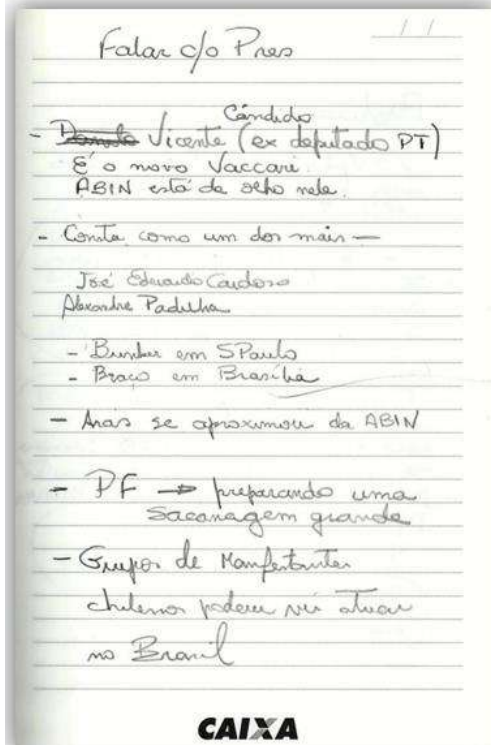 / /
Falar c/o Pres
Cândido
- Vicente (ex deputado PT)
É o novo Vaccari.
ABIN está de olho nele.
- Consta como um dos mais —
José Eduardo Cardoso
Alexandre Padilha
- Bunker em SPaulo
- Braço em Brasília
- Aras se aproximou da ABIN
- PF → preparando uma
sacanagem grande
- Grupos de Manifestantes
chilenos podem vir atuar
no Brasil
CAIXA